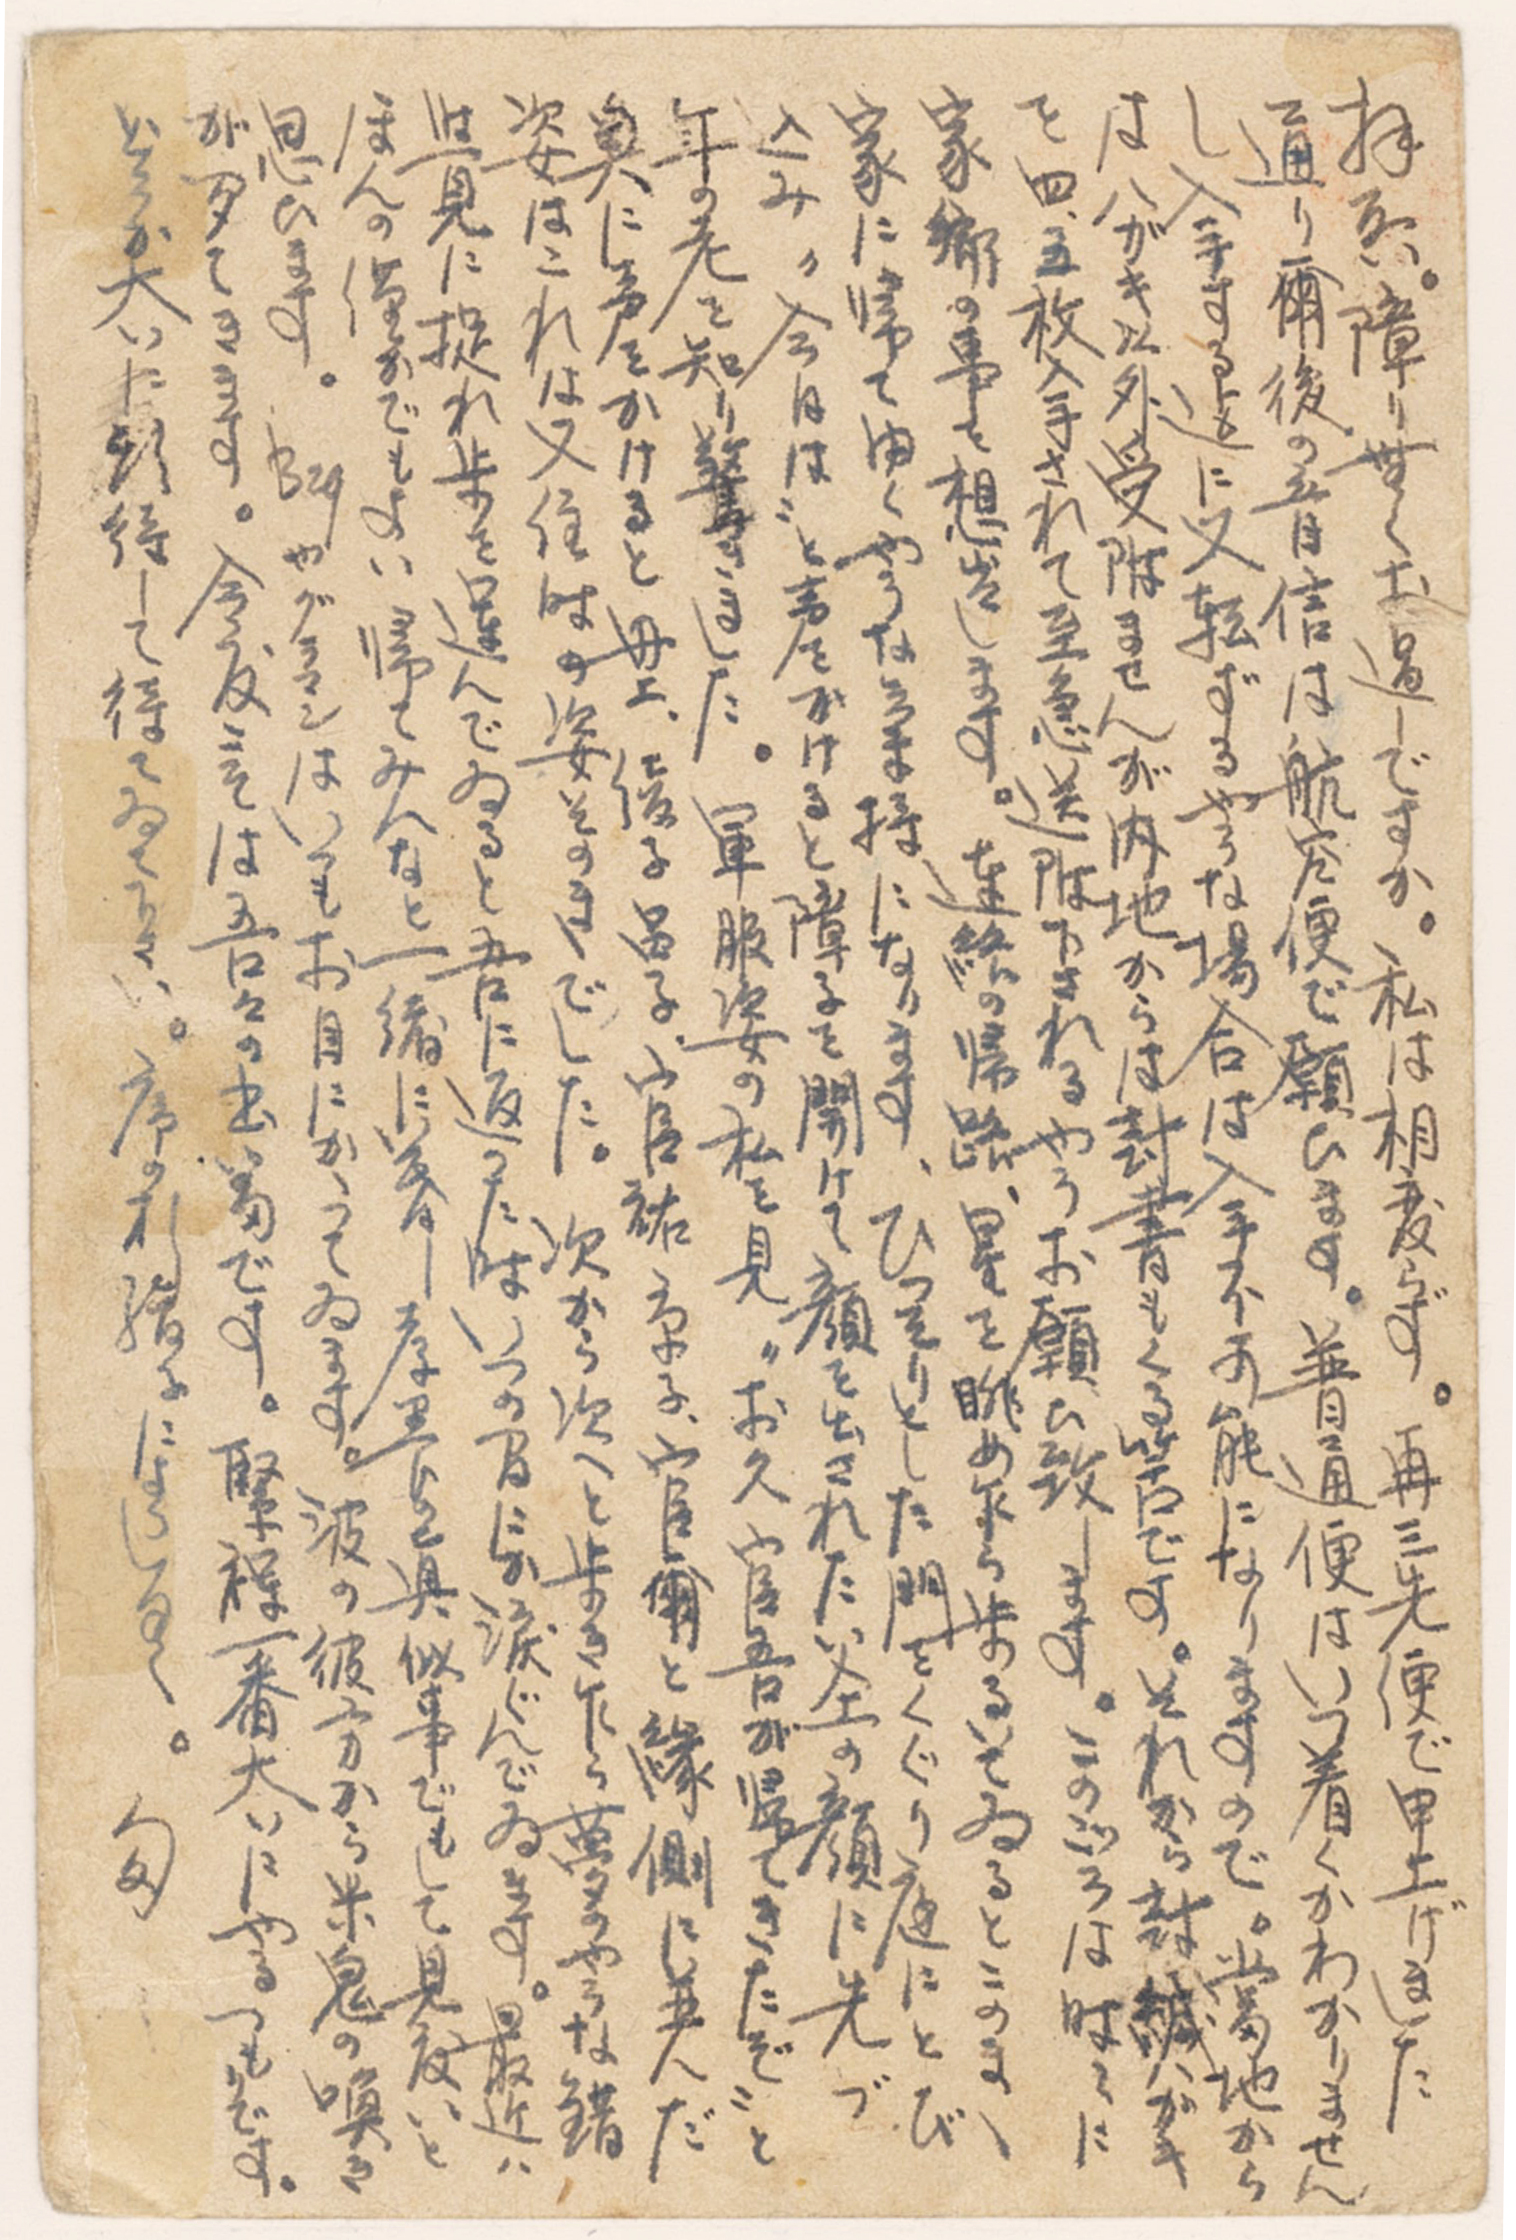 拝啓。障り無くお過しですか。私は相変らず。再三先便で申上げました
通り爾後の音信は航空便で願ひます。普通便はいつ着くかわかりません
し入手する迄に又転ずるやうな場合は入手不可能になりますので。当地から
はハガキ以外受附ませんが内地からは封書もくる筈です。それから封緘ハガキ
を四、五枚入手されて至急送附下されるやうお願ひ致します。この頃は時々に
家郷の事を想出します。連絡の帰路、星を眺め乍ら歩るいてゐるとこのまゝ
家に帰て行くやうな気持になります、ひつそりとした門をくぐり庭にとび
込み〃今日は〃と声をかけると障子を開けて顔を出されたい父上の顔に先づ
年の老を知り驚きました。軍服姿の私を見〃お久 官吾が帰てきたぞ〃と
奥に声をかけると母上、俊子 昌子、官祐 京子、官爾と縁側に並んだ
姿はこれは又往時の姿そのまゝでした。次から次へと歩き乍ら夢のやうな錯
覚に捉れ歩を運んでゐると吾に返つた時いつの間にか涙ぐんでゐます。最近に
ほんの僅かでもよい帰てみんなと一緒に暮し孝養の真似事でもして見度いと
思ひます。 はいつもお目にかゝつてゐます。波の彼方から米鬼の嗅さ
が匂てきます。今度こそは吾々の出番です。緊褌一番大いにやるつもりです。
どうか大いに期待して待てゐて下さい。